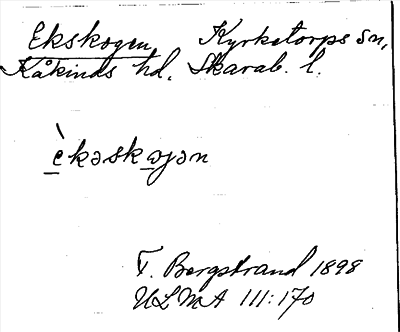 Ekskogen Kyrketorps sn,
Kåkinds hd. Skarab. l.
è̱kəskə̱jən
T. Bergstrand 1898
ULMA 111:170